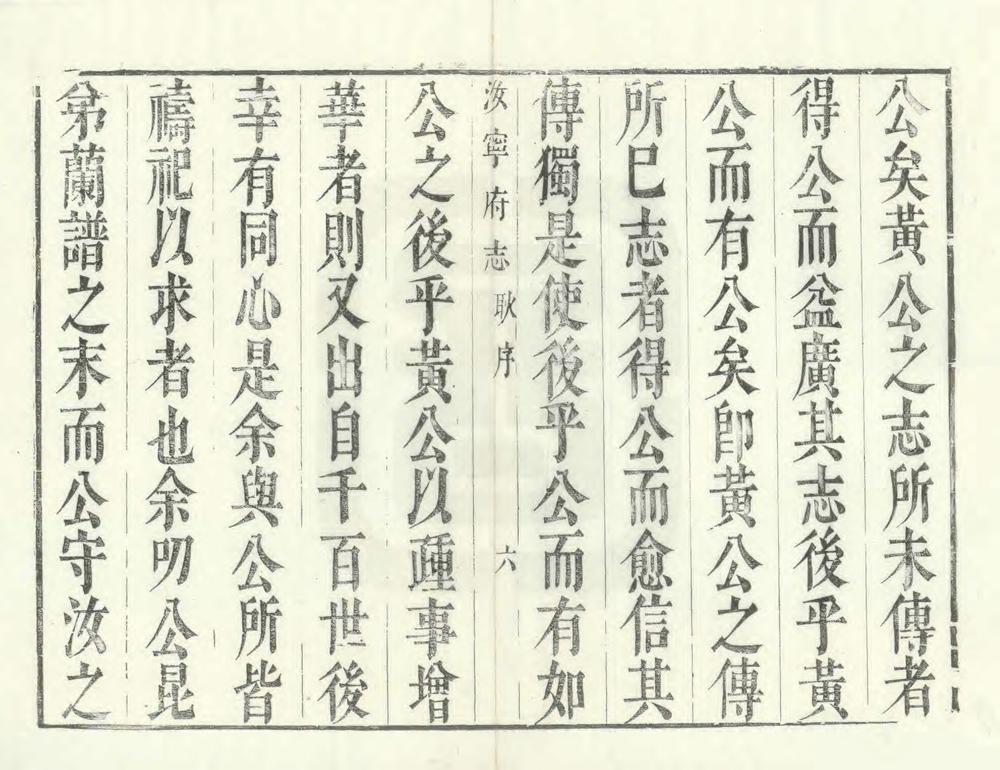 公矣黃公之志所未傳者
得公而益廣其志後乎黃
公而有公矣卽黃公之傳
所已志者得公而愈信其
傳獨是使後乎公而有如
汝寧府志 耿序 六
公之後乎黃公以踵事增
華者則又出自千百世後
幸有同心是余與公所皆
禱祀以求者也余叨公昆
弟蘭譜之末而公守汝之